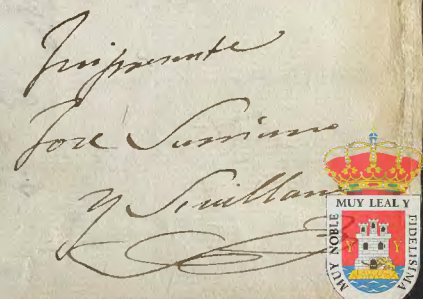 Fui presente
Jose Surriano
y Sevillano
MUY NOBLE MUY LEAL Y FIDELISIMA
Y Y